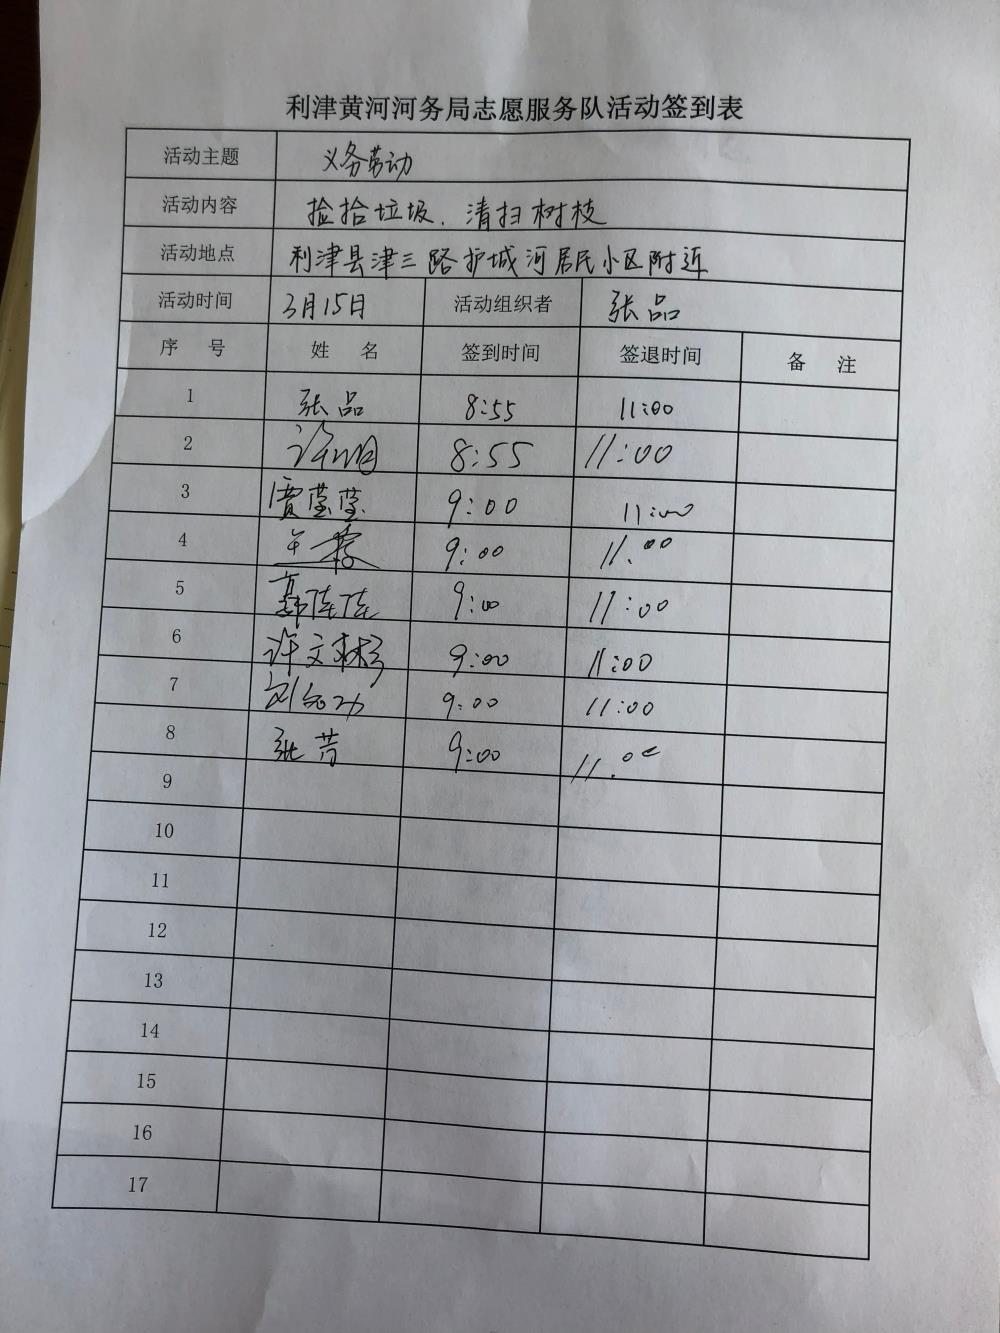 利津黄河河务局志愿服务队活动签到表
活动主题 义务劳动
活动内容 捡拾垃圾、清扫树枝
活动地点 利津县津三路护城河居民小区附近
活动时间 3月15日 活动组织者 张品
序 号 姓 名 签到时间 签退时间 备 注
1 张品 8:55 11:00
2 8:55 11:00
3 贾莹莹 9:00 11:00
4 9:00 11:00
5 9:00 11:00
6 许文彬 9:00 11:00
7 9:00 11:00
8 张芳 9:00 11:00
9
10
11
12
13
14
15
16
17